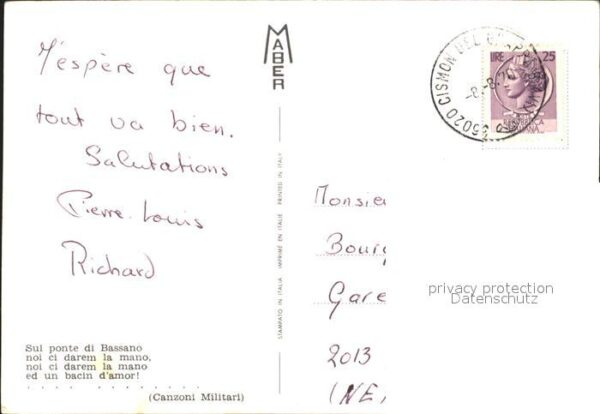 J'espère que
tout va bien.
Salutations
Pierre-Louis
Richard
Sul ponte di Bassano
noi ci darem la mano,
noi ci darem la mano
ed un bacin d'amor!
(Canzoni Militari)
MABER
STAMPATO IN ITALIA - IMPRIMÉ EN ITALIE - PRINTED IN ITALY
LIRE 25
35020 CISMON DEL
Monsie
Bour
Gare
2013
(NE,
privacy protection
Datenschutz